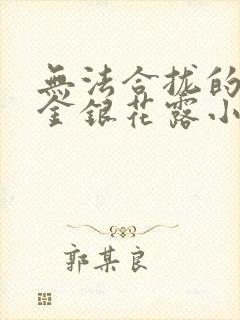 無法合拢的
金銀花露小
郭某良